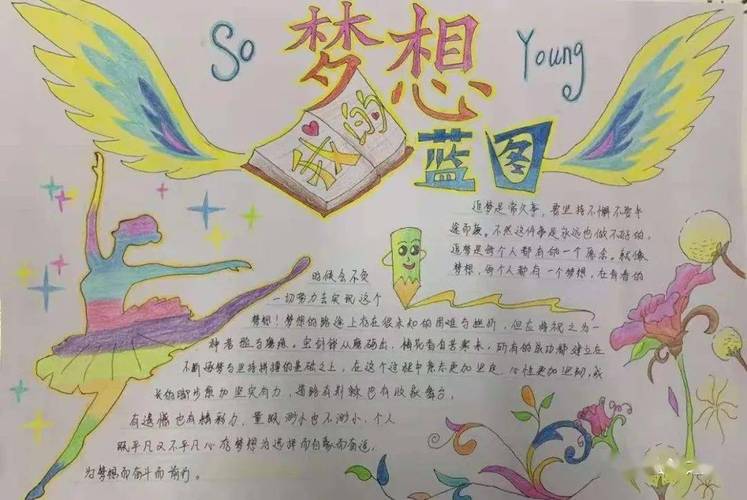 So 梦想 Young
我的
蓝图
追梦是常久事，要坚持不懈不要半
途而废。不然这件事是永远也做不好的。
追梦是每个人都有的一个。就像
梦想，每个人都有一个梦想，在有的
时候会不受
一切努力去实现这个
梦想！梦想的路途上存在很未知的困难与挫折，但应将视之为一
种考验与磨练。宝剑锋从磨砺出，梅花香自苦寒来，所有的成功都建立在
不断追梦与坚持拼搏的基础之上，在这个过程中意志更加坚定 心性更加坚韧，成
长的脚步愈加坚实有力，道路有荆棘也有收获舞台，
有遗憾也有精彩力，渺小也不渺小，个人
既平凡又不平凡心存梦想为选择而自豪而奋进，
为梦想而奋斗而前行。